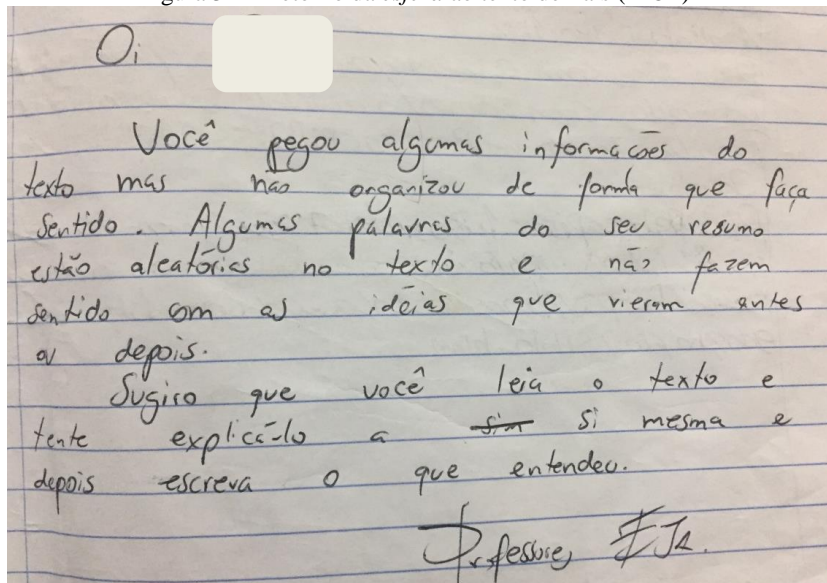 Oi
Você pegou algumas informações do
texto mas não organizou de forma que faça
sentido. Algumas palavras do seu resumo
estão aleatórias no texto e não fazem
sentido com as idéias que vieram antes
ou depois.
Sugiro que você leia o texto e
tente explicá-lo a sim si mesma e
depois escreva o que entendeu.